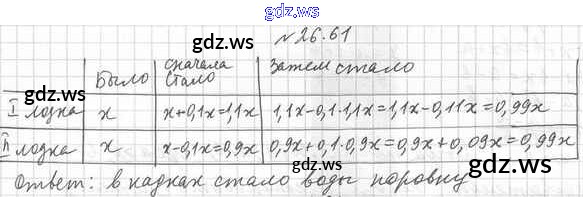 gdz.ws
№26.61
gdz.ws gdz.ws gdz.ws
Было сначала стало Затем стало
I лодка x x+0,1x=1,1x 1,1x-0,1·1,1x=1,1x-0,11x=0,99x
gdz.ws gdz.ws gdz.ws
II лодка x x-0,1x=0,9x 0,9x+0,1·0,9x=0,9x+0,09x=0,99x
Ответ: в кадках стало воды поровну
gdz.ws gdz.ws gdz.ws